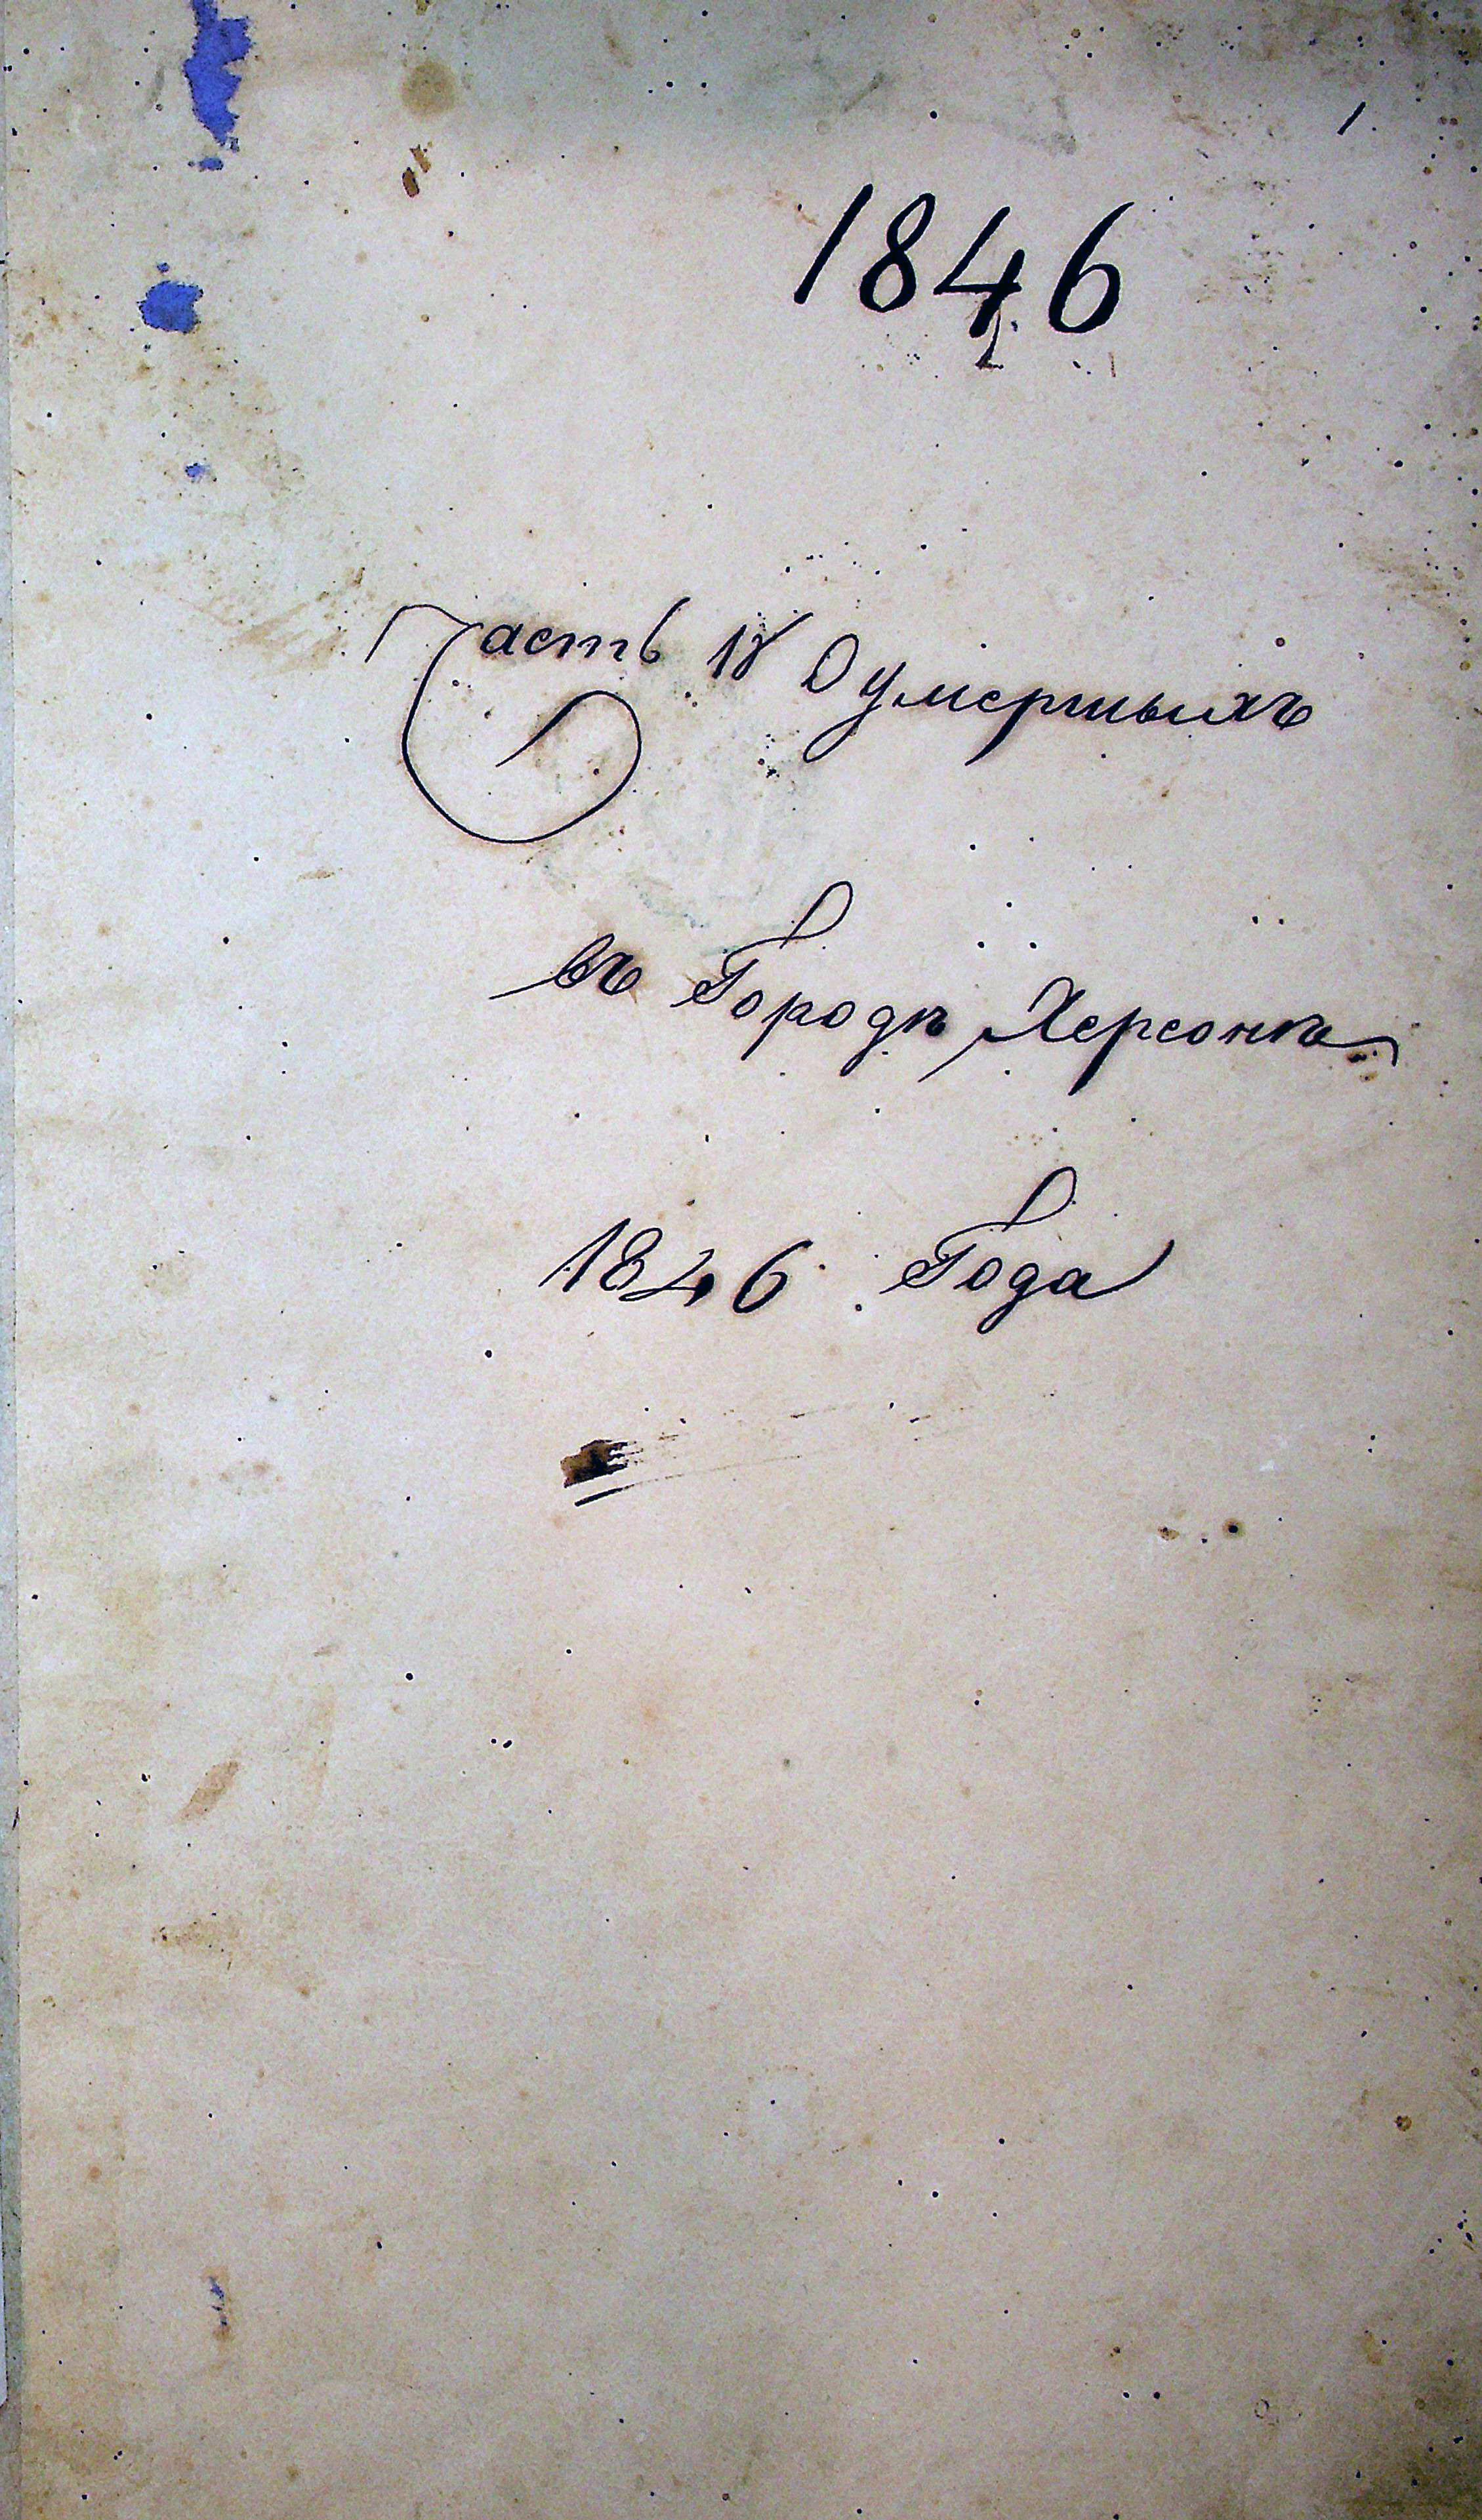 1.
1846
Часть IV О умершихъ
въ Городѣ Херсонѣ
1846 Года